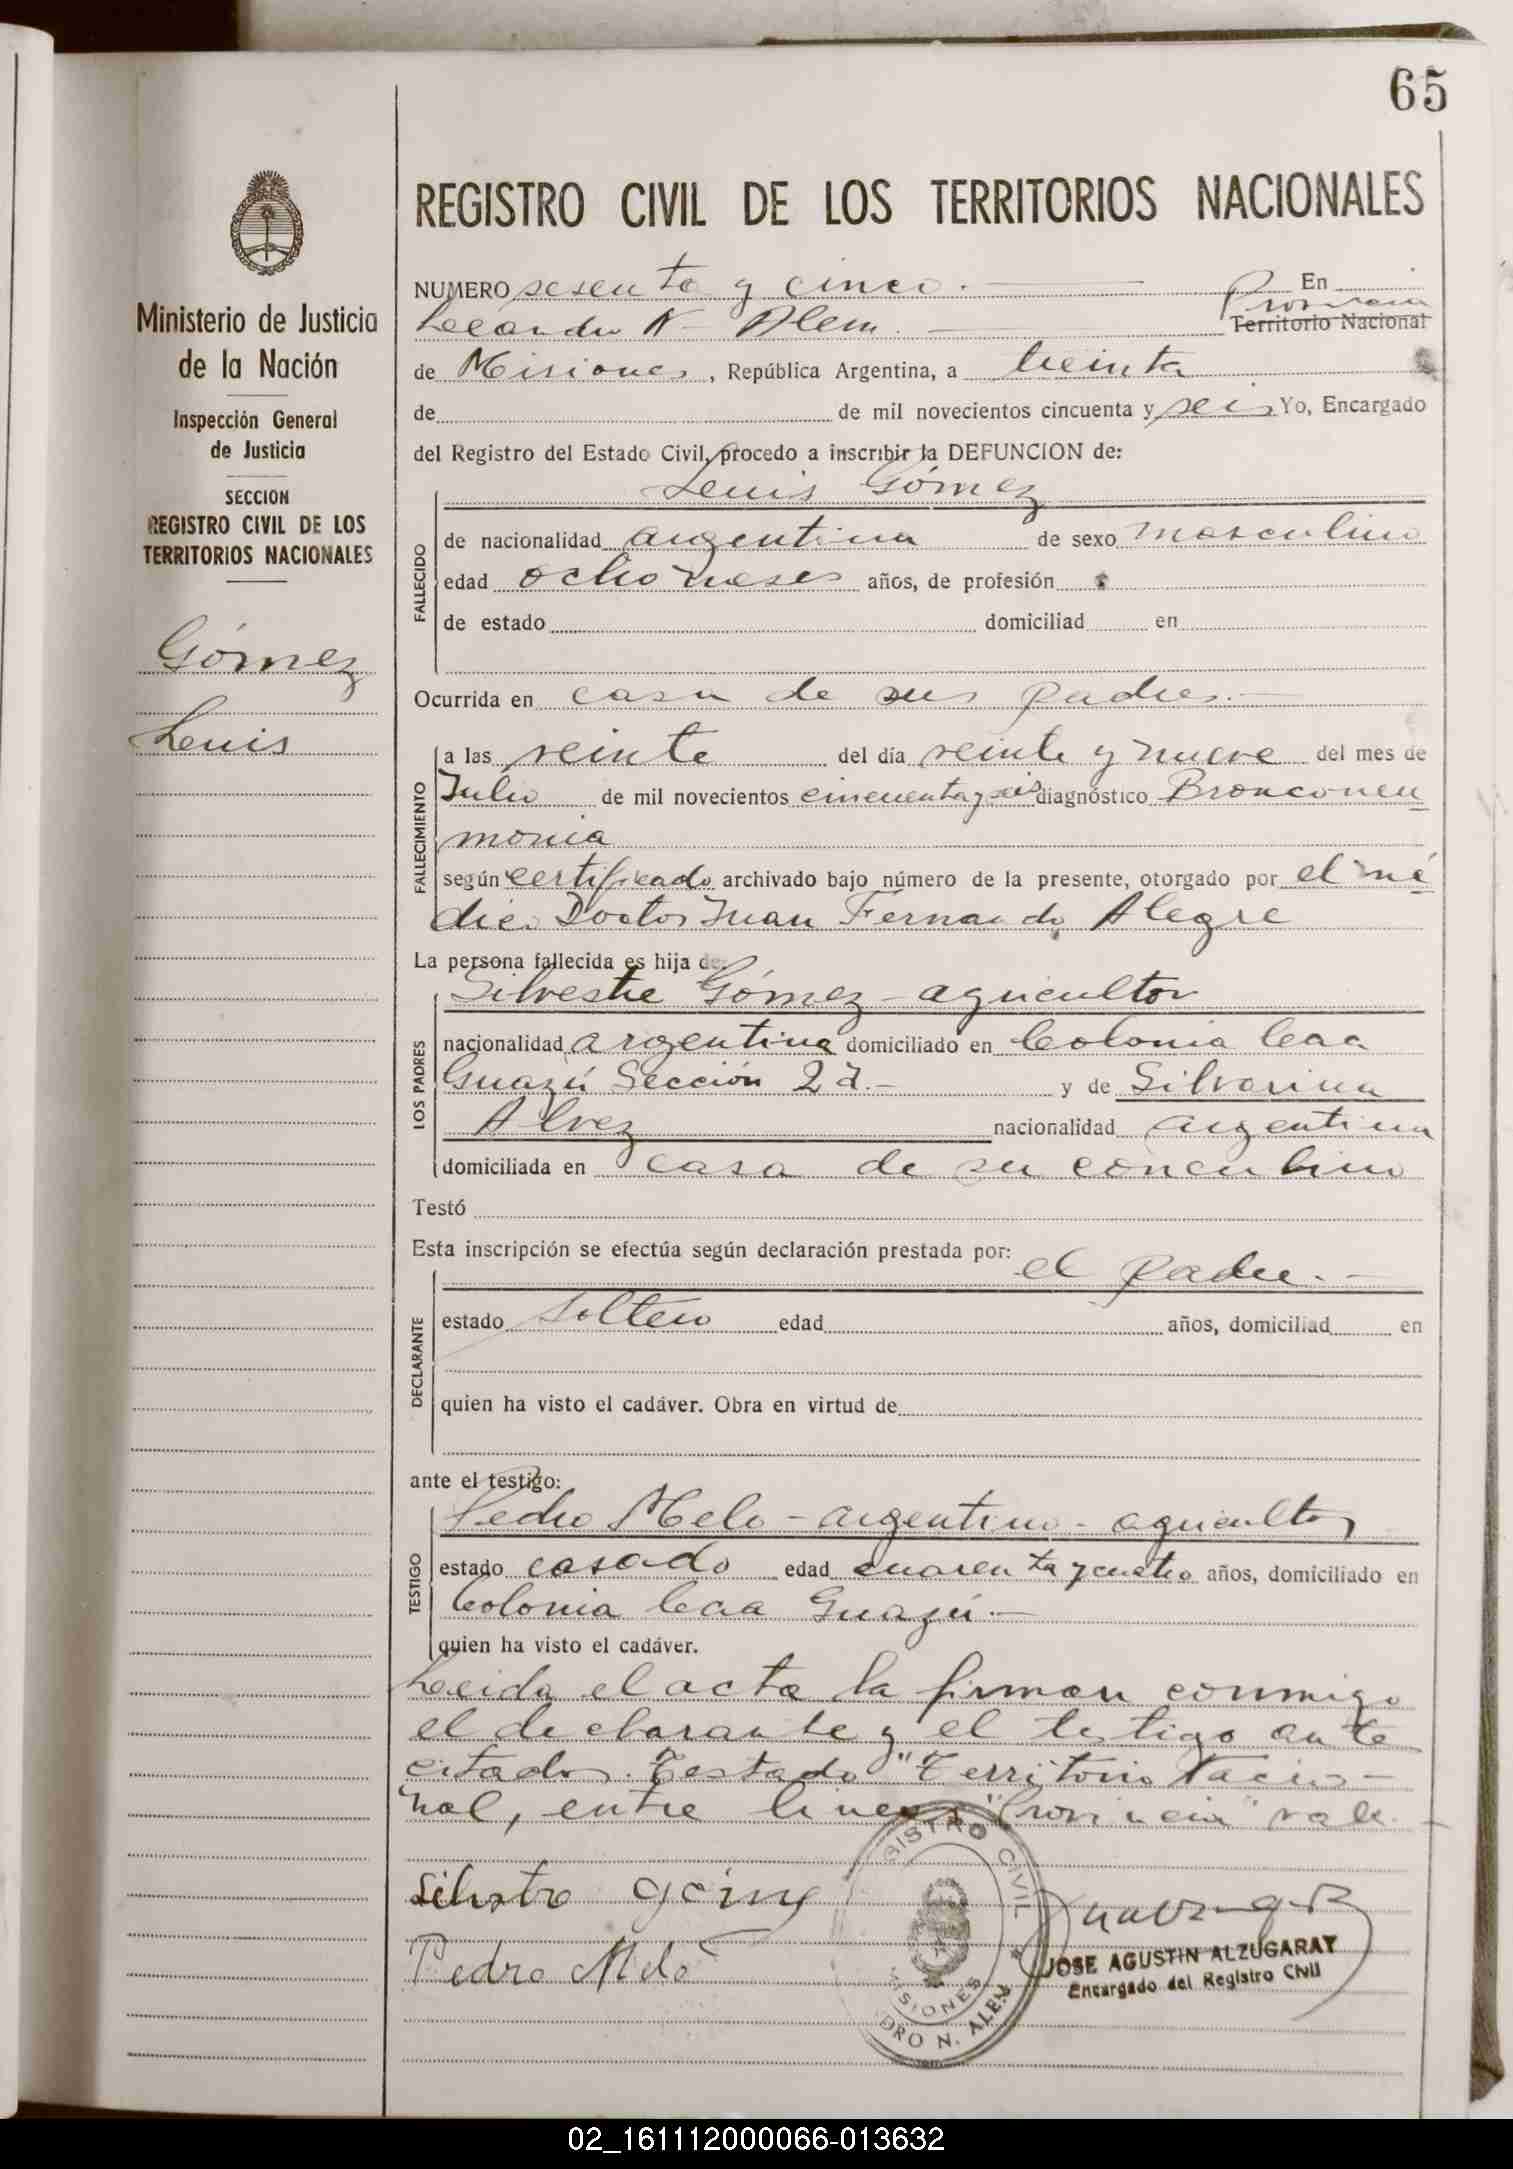 65
REGISTRO CIVIL DE LOS TERRITORIOS NACIONALES
Ministerio de Justicia
de la Nación
Inspección General
de Justicia
SECCION
REGISTRO CIVIL DE LOS
TERRITORIOS NACIONALES
Gómez
Luis
NUMERO sesenta y cinco.— En
Leandro N. Alem.— Provincia Territorio Nacional
de Misiones, República Argentina, a treinta
de de mil novecientos cincuenta y seis Yo, Encargado
del Registro del Estado Civil, procedo a inscribir la DEFUNCION de:
Luis Gómez
FALLECIDO
de nacionalidad argentina de sexo masculino
edad ocho meses años, de profesión
de estado domiciliad en
Ocurrida en casa de sus padres.—
FALLECIMIENTO
a las veinte del día veinte y nueve del mes de
Julio de mil novecientos cincuenta y seis diagnóstico Bronconeu
monia
según certificado archivado bajo número de la presente, otorgado por el mé
dico Doctor Juan Fernando Alegre
La persona fallecida es hija de:
LOS PADRES
Silvestre Gómez - agricultor
nacionalidad argentina domiciliado en Colonia Caa
Guazú Sección 2ª.- y de Silvarina
Alvez nacionalidad argentina
domiciliada en casa de su concubino
Testó
Esta inscripción se efectúa según declaración prestada por:
el padre.—
DECLARANTE
estado soltero edad años, domiciliad en
quien ha visto el cadáver. Obra en virtud de
ante el testigo:
TESTIGO
Pedro Melo - argentino - agricultor
estado casado edad cuarenta y cuatro años, domiciliado en
Colonia Caa Guazú.—
quien ha visto el cadáver.
Leida el acta la firman conmigo
el declarante y el testigo ante
citados. Testado "Territorio Nacio-
nal, entre lineas "Provincia" vale.—
Silvestre
Pedro Melo
REGISTRO CIVIL
MISIONES
DRO N. ALEM
JOSE AGUSTIN ALZUGARAY
Encargado del Registro Civil
02_161112000066-013632